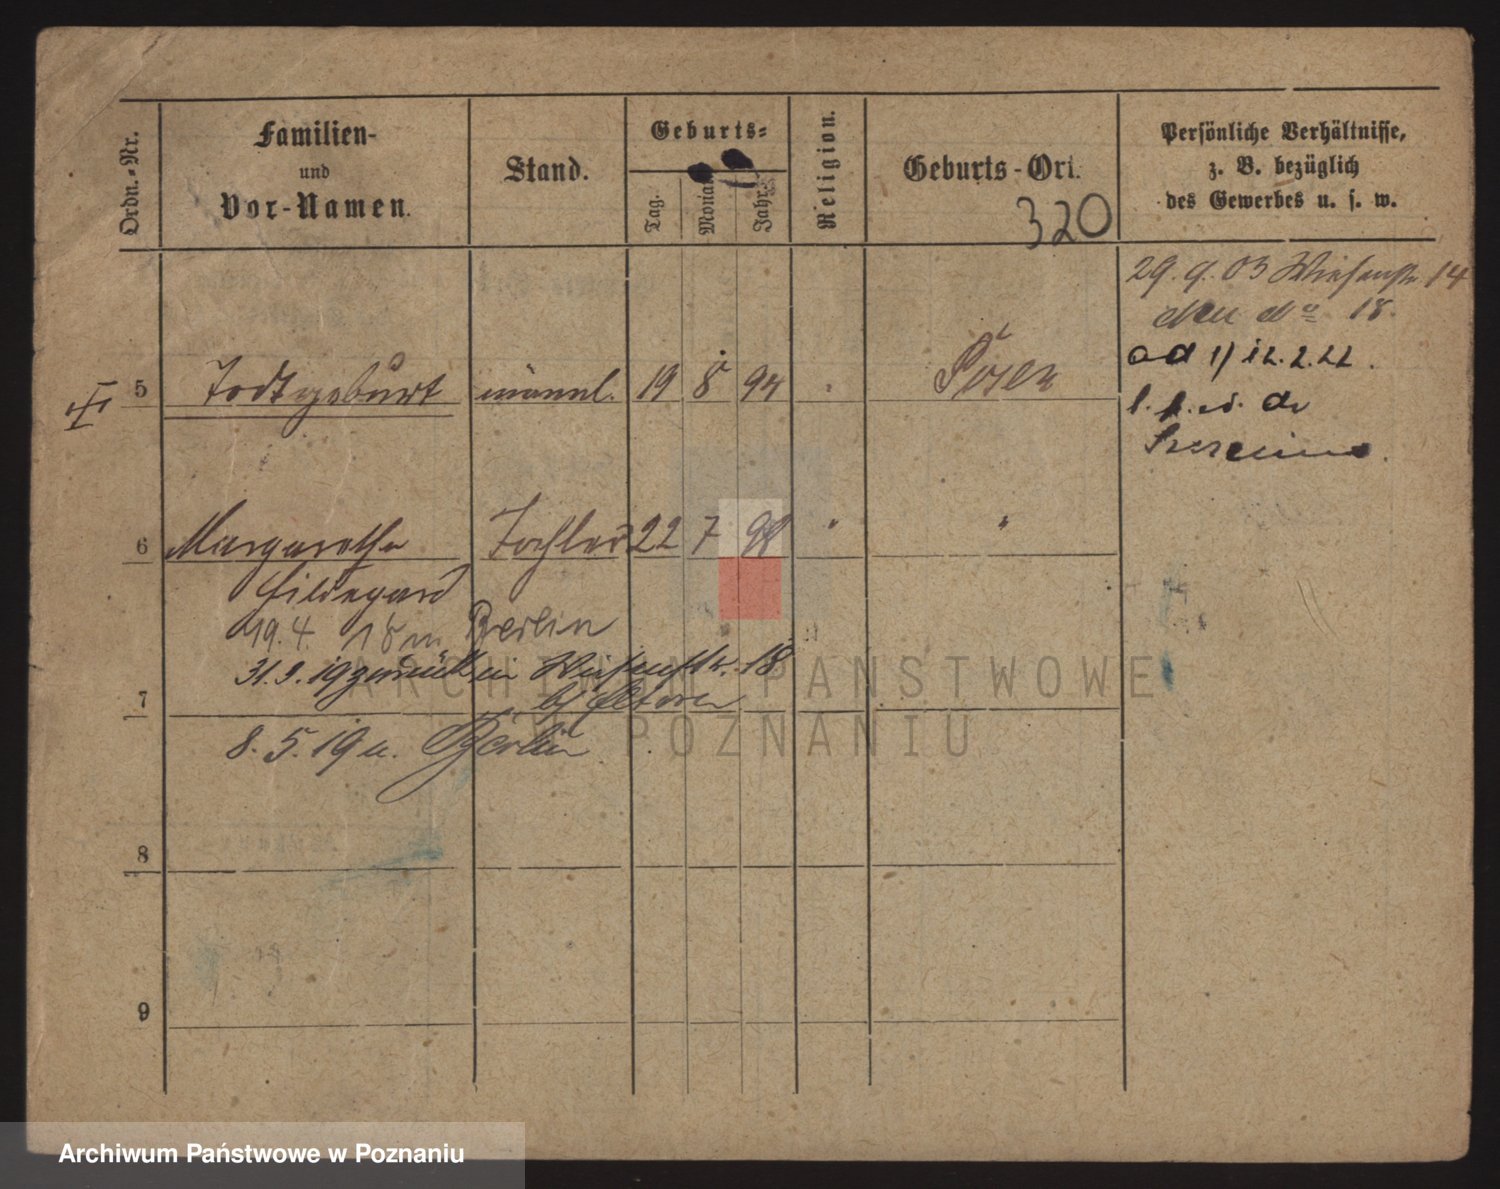 Ordn.-Nr.
Familien-
und
Vor-Namen.
Stand.
Geburts-
Tag.
Monat
Jahr.
Religion.
Geburts-Ort.
320
Persönliche Verhältnisse,
z. B. bezüglich
des Gewerbes u. s. w.
29. 9. 03 Wiesenstr. 14
No 18.
ad 1) 12.2.22.
5 Todtgeburt männl. 19 8 94 " Posen
6 Margarethe Tochter 22 7 98 " "
Hildegard
19.4. 18 n. Berlin
31.3.19 zurück n Wiesenstr. 18
b/ Eltern
7
8.5.19 n. Berlin
8
9
ARCHIWUM PAŃSTWOWE
W POZNANIU
Archiwum Państwowe w Poznaniu